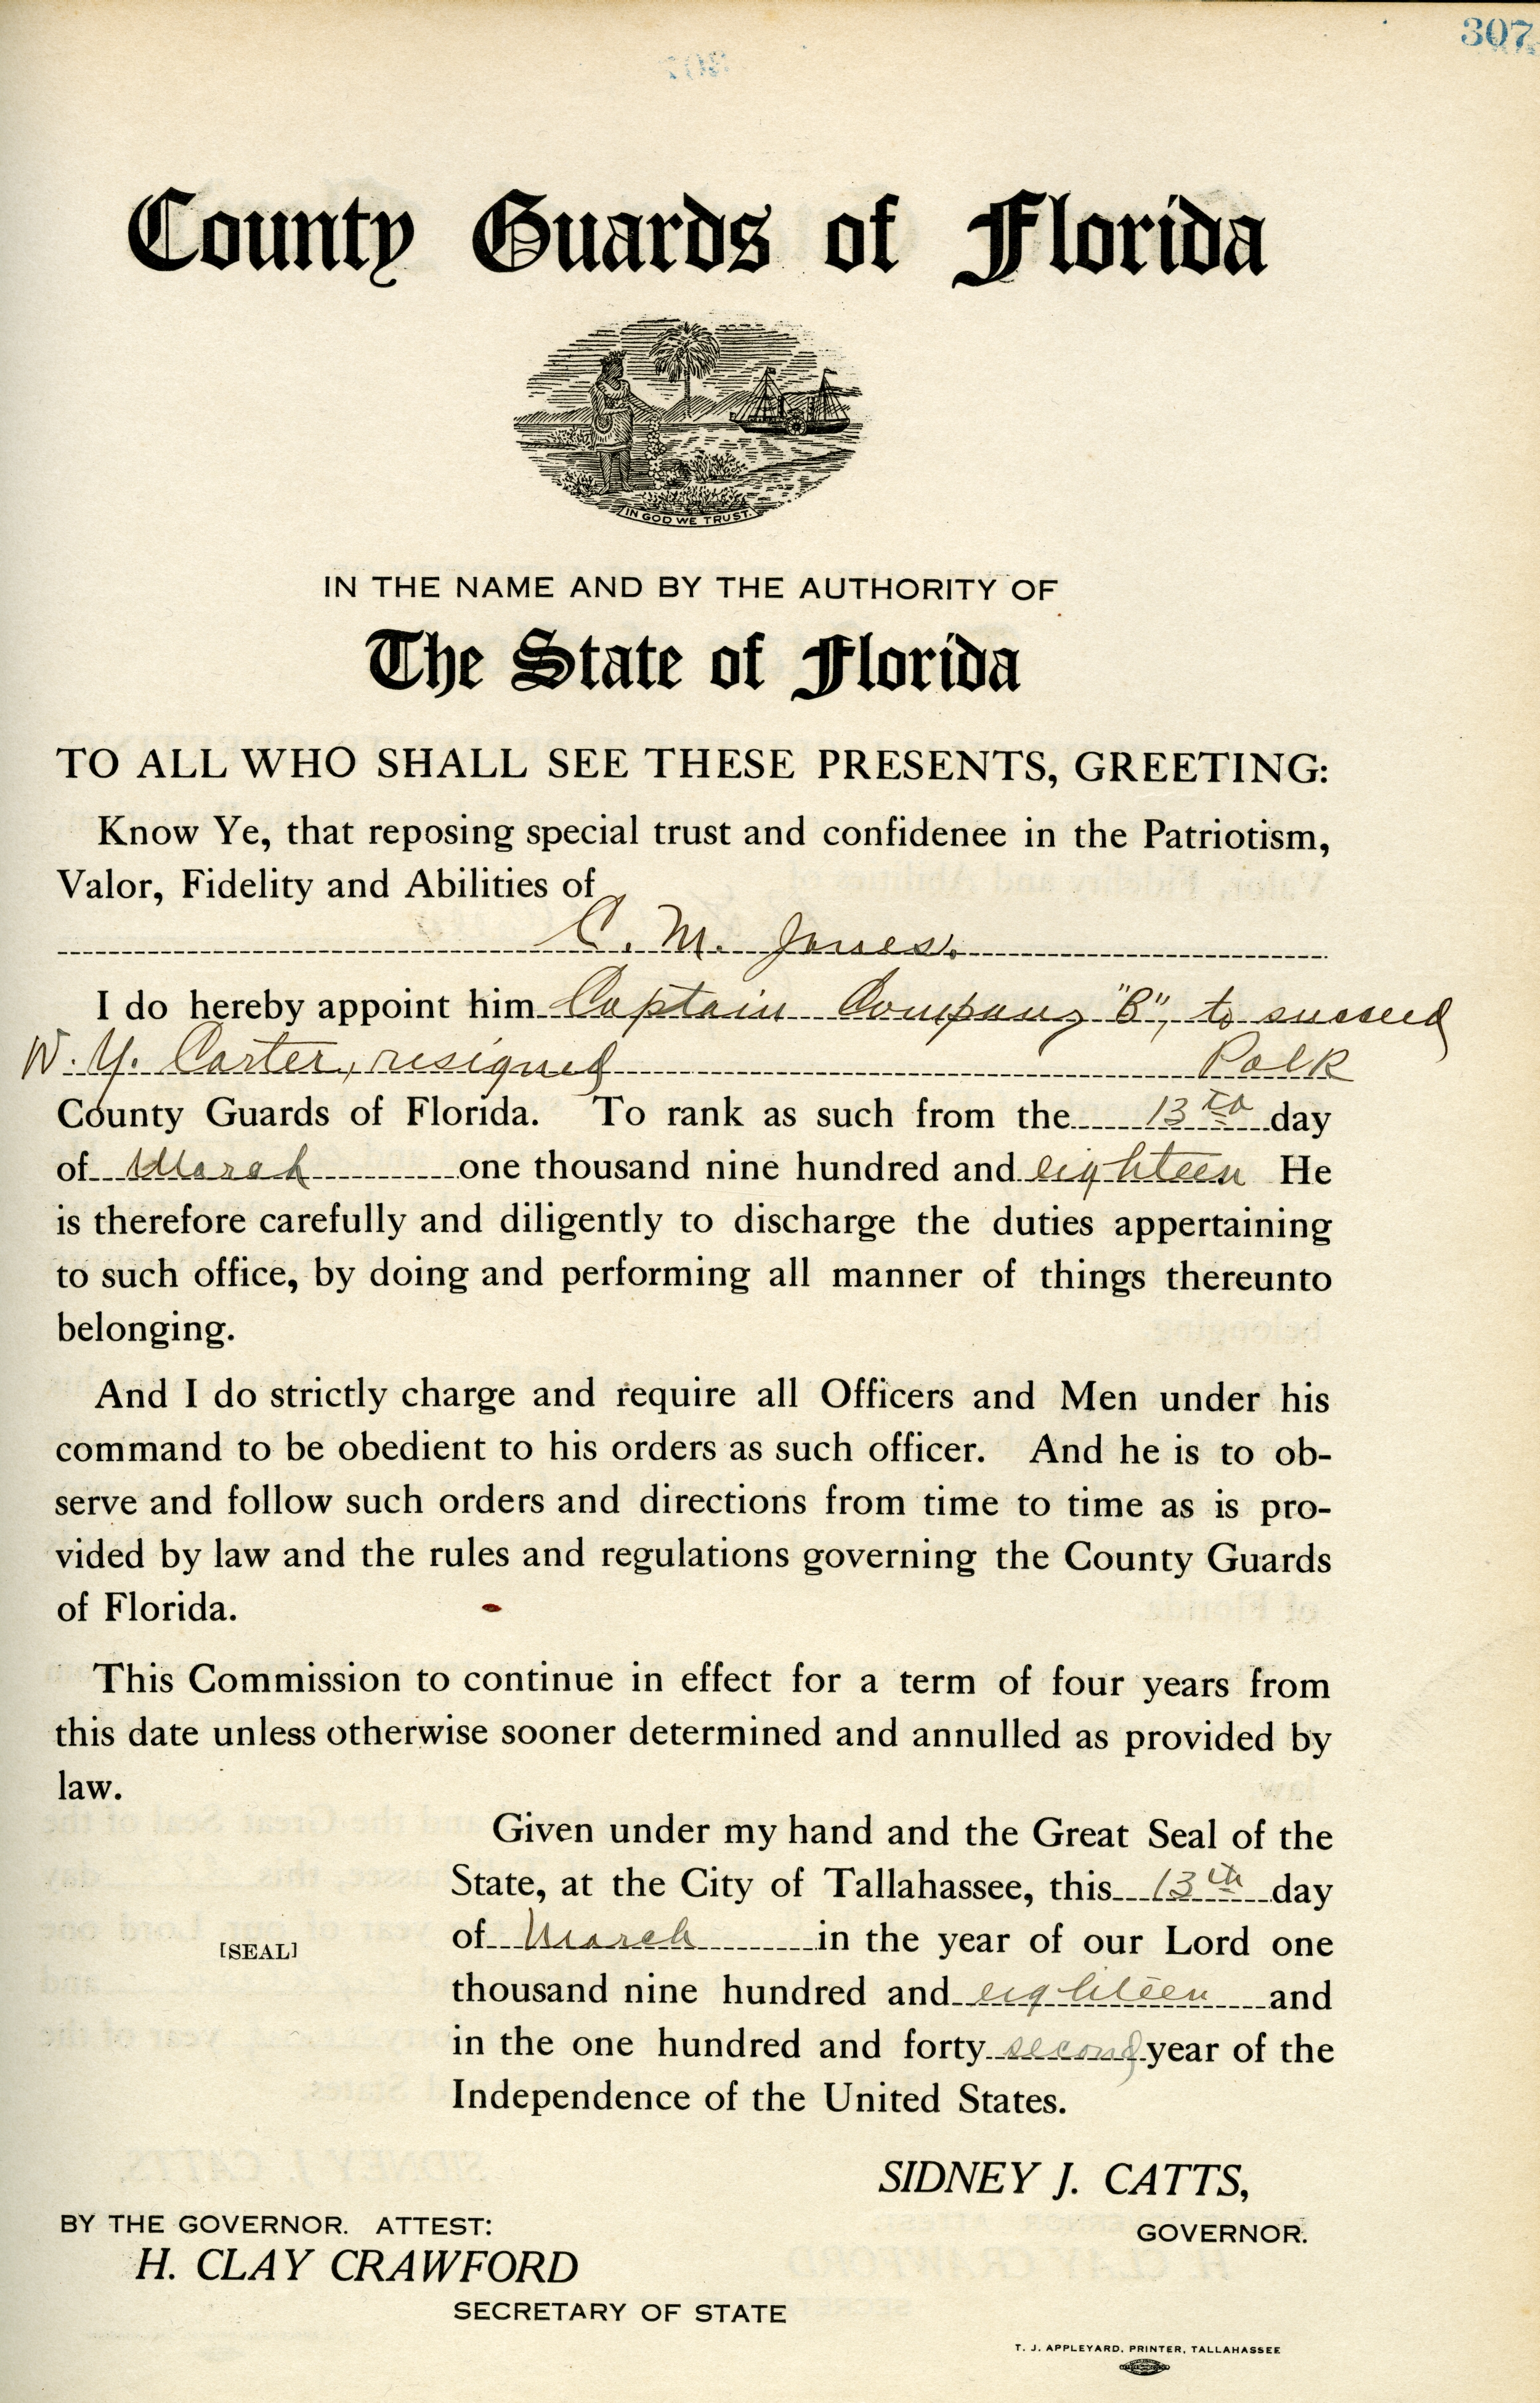 307
County Guards of Florida
IN GOD WE TRUST.
IN THE NAME AND BY THE AUTHORITY OF
The State of Florida
TO ALL WHO SHALL SEE THESE PRESENTS, GREETING:
Know Ye, that reposing special trust and confidenee in the Patriotism,
Valor, Fidelity and Abilities of
C. M. Jones.
I do hereby appoint him Captain Company "B", to succeed
W. Y. Carter, resigned Polk
County Guards of Florida. To rank as such from the 13th day
of March one thousand nine hundred and eighteen He
is therefore carefully and diligently to discharge the duties appertaining
to such office, by doing and performing all manner of things thereunto
belonging.
And I do strictly charge and require all Officers and Men under his
command to be obedient to his orders as such officer. And he is to ob-
serve and follow such orders and directions from time to time as is pro-
vided by law and the rules and regulations governing the County Guards
of Florida.
This Commission to continue in effect for a term of four years from
this date unless otherwise sooner determined and annulled as provided by
law.
Given under my hand and the Great Seal of the
State, at the City of Tallahassee, this 13th day
of March in the year of our Lord one
[SEAL]
thousand nine hundred and eighteen and
in the one hundred and forty second year of the
Independence of the United States.
SIDNEY J. CATTS,
GOVERNOR.
BY THE GOVERNOR. ATTEST:
H. CLAY CRAWFORD
SECRETARY OF STATE
T. J. APPLEYARD, PRINTER, TALLAHASSEE